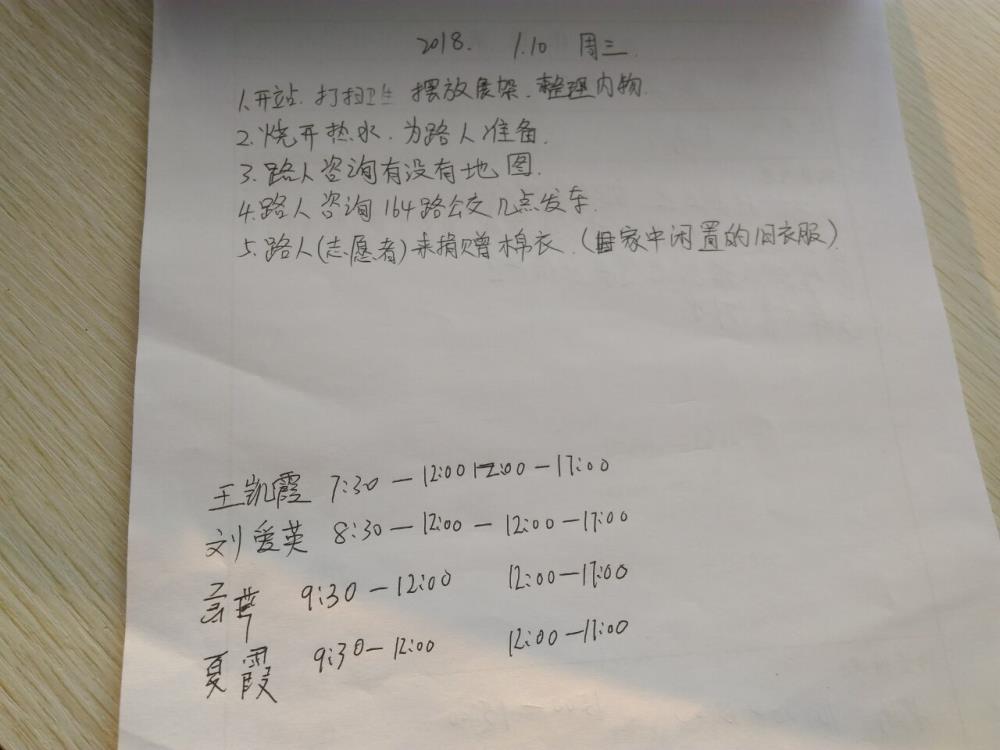 2018. 1.10 周三
1.开站.打扫卫生 摆放展架.整理内物.
2.烧开热水.为路人准备.
3.路人咨询有没有地图.
4.路人咨询164路公交几点发车.
5.路人(志愿者)来捐赠棉衣.(家中闲置的旧衣服).
王凯霞 7:30—12:00 12:00—17:00
刘爱英 8:30—12:00—12:00—17:00
9:30—12:00 12:00—17:00
夏霞 9:30—12:00 12:00—17:00